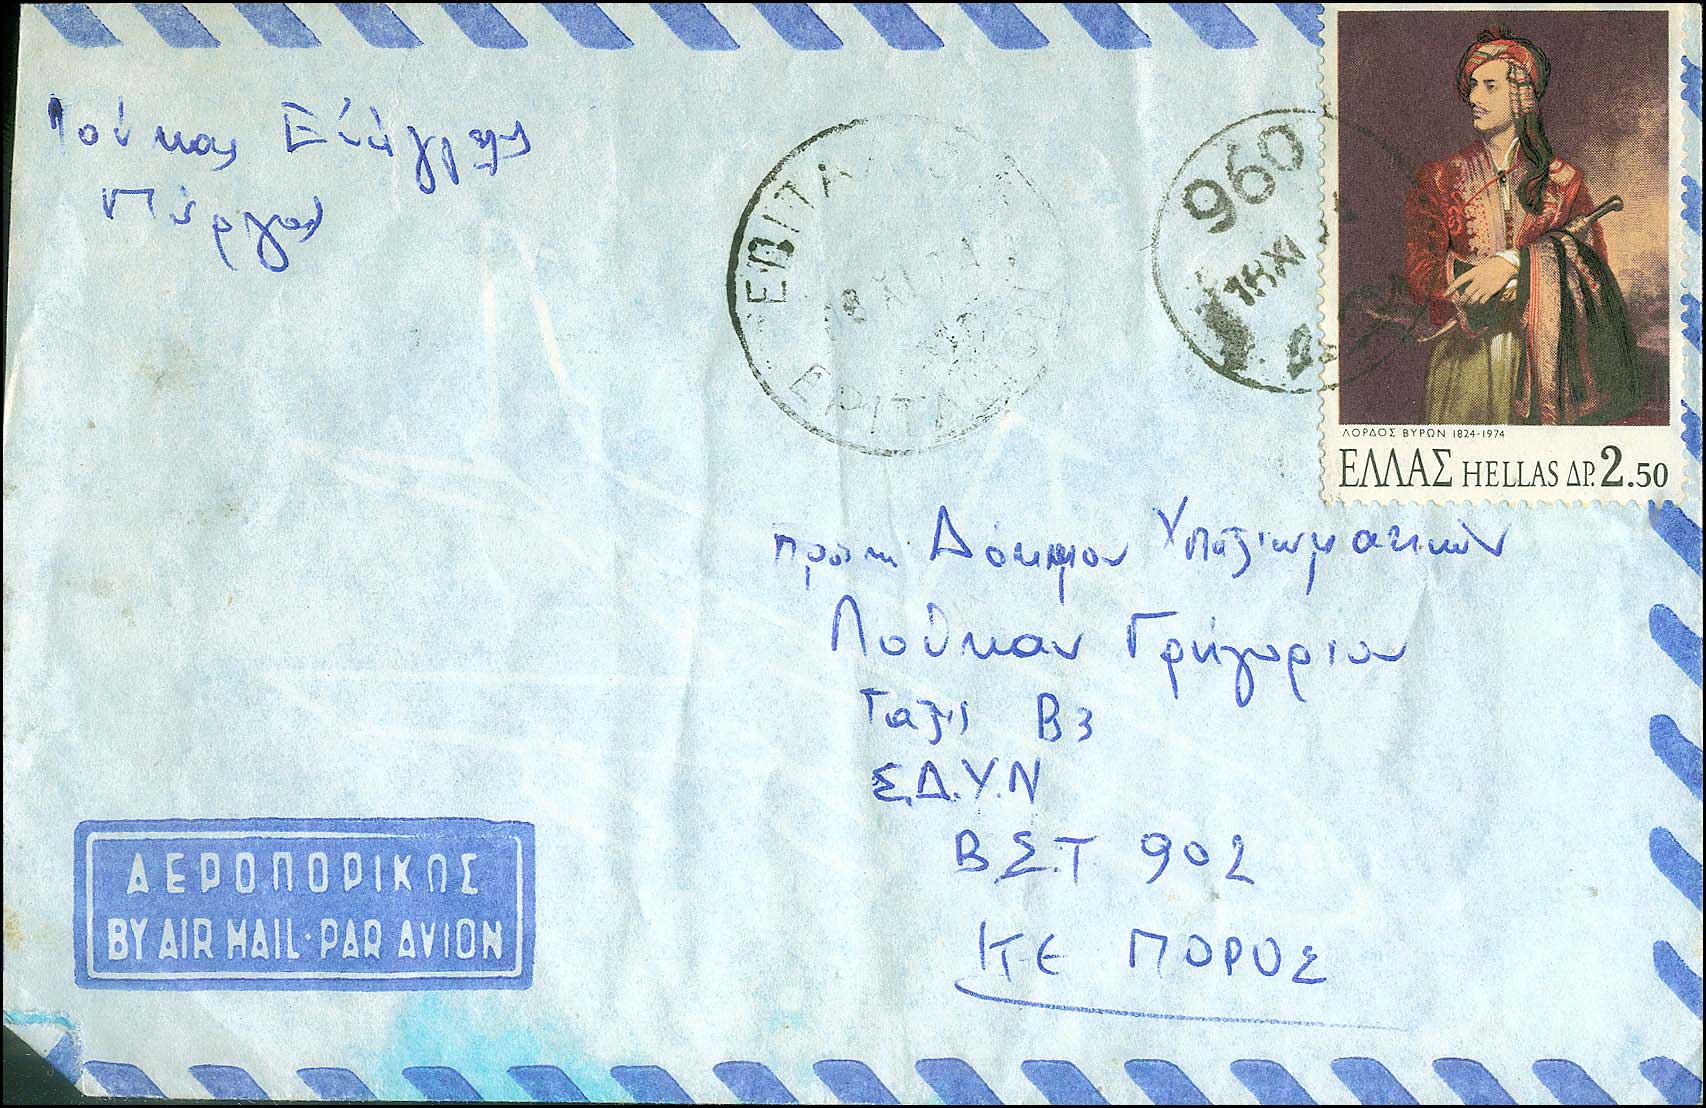 Λούκας Ευάγγελος
Πύργος
960
18 XI
ΕΠΙΤΑΛΙΟ
ΕΡΙΤΑΛΙΟ
ΛΟΡΔΟΣ ΒΥΡΩΝ 1824-1974
ΕΛΛΑΣ HELLAS ΔΡ. 2.50
Δόκιμον Υπαξιωματικών
Λούκαν Γρηγόριον
Ταξι Β3
Σ.Δ.Υ.Ν
Β.Σ.Τ 902
Κ.Ε ΠΟΡΟΣ
ΑΕΡΟΠΟΡΙΚΩΣ
BY AIR MAIL·PAR AVION